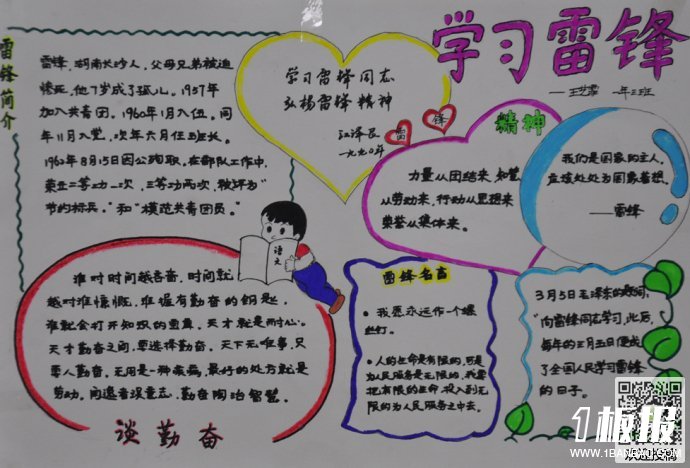 学习雷锋
一年三班
雷锋简介
雷锋,湖南长沙人,父母兄弟被迫
惨死,他7岁成了孤儿。1957年
加入共青团。1960年1月入伍。同
年11月入党,次年六月任班长。
1962年8月15日因公殉职,在部队工作中,
荣立二等功一次,三等功两次,被评为"
节约标兵。"和"模范共青团员。"
学习雷锋同志
弘杨雷锋精神
江泽民
一九九〇年
雷 锋
精神
力量从团结来,智慧
从劳动来,行动从思想来
荣誉从集体来。
我们是国家的主人,
应该处处为国家着想。
——雷锋
语文
谁对时间越吝啬,时间就
越对谁慷慨,谁握有勤奋的钥匙,
谁就会打开知识的宝典。天才就是耐心。
天才勤奋之间,要选择勤奋。天下无难事,只
要人勤奋。无用是一种疾病,最好的处方就是
劳动。问遍者没意志,勤奋陶冶智慧。
谈勤奋
雷锋名言
·我愿永远作一个螺
丝钉。
·人的生命是有限的,可是
为人民服务是无限的,我要
把有限的生命,投入到无
限的为人民服务之中去。
3月5日毛泽东的题词,
"向雷锋同志学习,此后,
每年的三月五日便成
了全国人民学习雷锋
的日子。
1板报
WWW.1BANBAO.COM
欢迎投稿